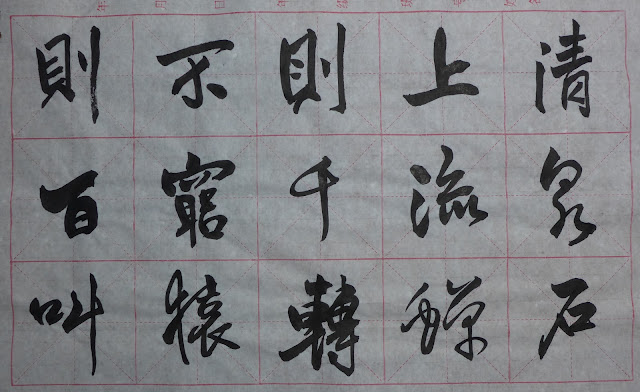 清泉石
上流蟬
則千轉
不窮猿
則百叫